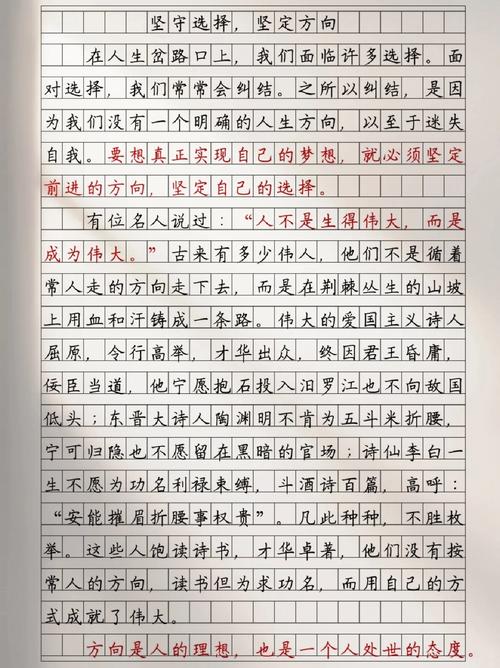 坚守选择，坚定方向
在人生岔路口上，我们面临许多选择。面
对选择，我们常常会纠结。之所以纠结，是因
为我们没有一个明确的人生方向，以至于迷失
自我。要想真正实现自己的梦想，就必须坚定
前进的方向，坚定自己的选择。
有位名人说过：“人不是生得伟大，而是
成为伟大。”古来有多少伟人，他们不是循着
常人走的方向走下去，而是在荆棘丛生的山坡
上用血和汗铸成一条路。伟大的爱国主义诗人
屈原，令行高举，才华出众，终因君王昏庸，
佞臣当道，他宁愿抱石投入汨罗江也不向敌国
低头；东晋大诗人陶渊明不肯为五斗米折腰，
宁可归隐也不愿留在黑暗的官场；诗仙李白一
生不愿为功名利禄束缚，斗酒诗百篇，高呼：
“安能摧眉折腰事权贵”。凡此种种，不胜枚
举。这些人饱读诗书，才华卓著，他们没有按
常人的方向，读书但为求功名，而用自己的方
式成就了伟大。
方向是人的理想，也是一个人处世的态度。